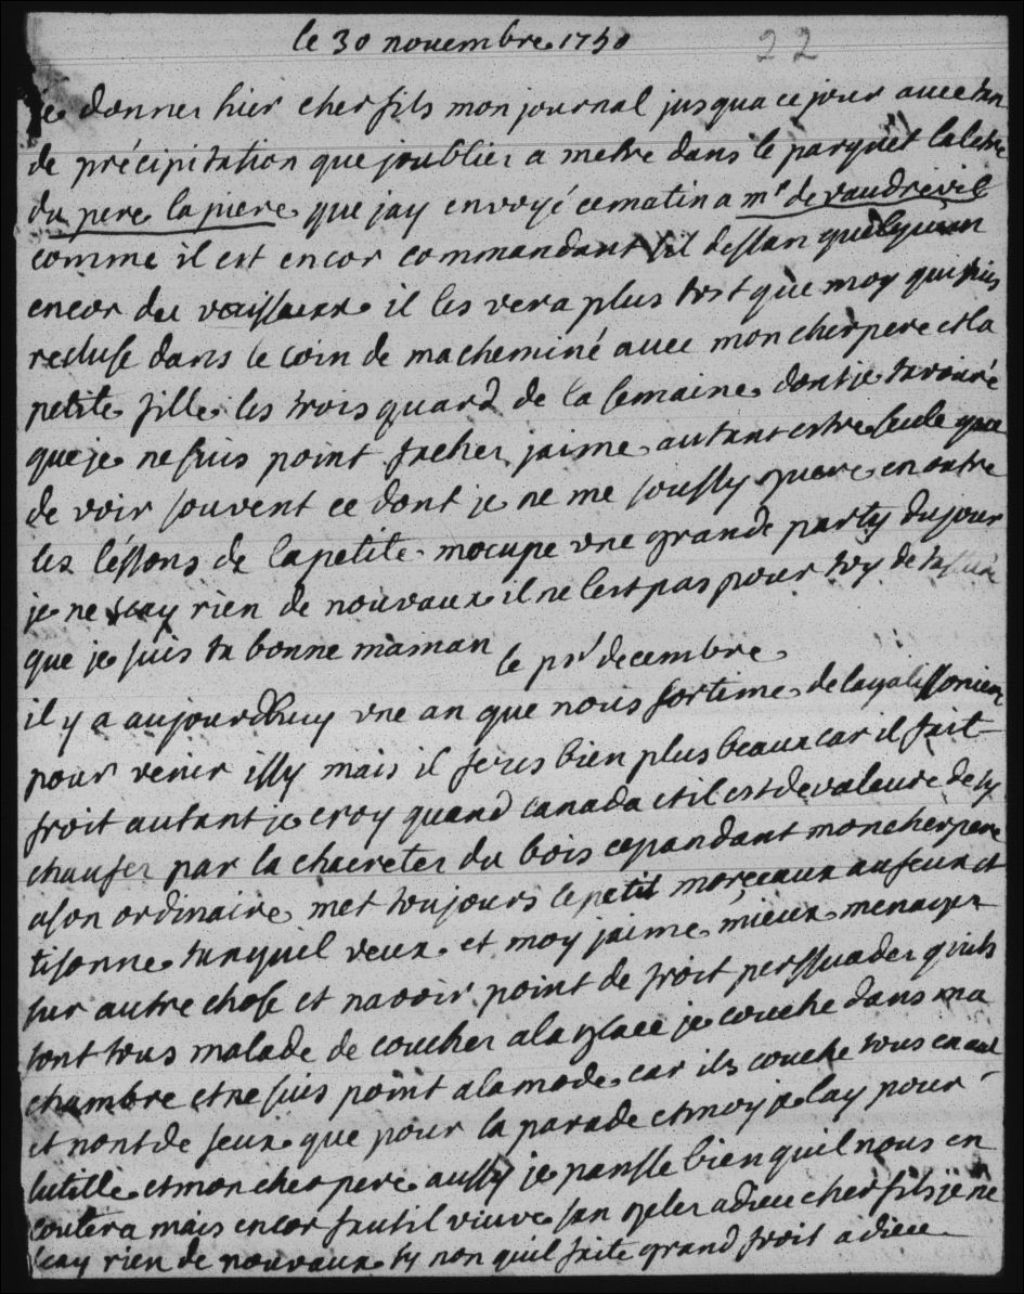 le 30 novembre 1750
22
je donner hier cher fils mon journal jusqua ce jour avec tan
de précipitation que joublier a metre dans le parquet la letre
du pere la piere que jay envoyé ce matin a mr de vaudreüil
comme il est encor commandant sil dessan quelquun
encor du vaisseaux il les vera plus tost que moy qui suis
recluse dans le coin de ma cheminé avec mon cher pere et la
petite fille les trois quard de la semaine dont je tavouré
que je ne suis point facher jaime autant estre seule que
de voir souvent ce dont je ne me soussy guere en outre
les léssons de la petite mocupe vne grande party du jour
je ne scay rien de nouvaux il ne lest pas pour toy de tassurer
que je suis ta bonne maman
le pr decembre
il y a aujourdhuy vne an que nous sortime de la galissoniere
pour venir issy mais il feres bien plus beaux car il fait
froit autant je croy quand canada et il est de valeure de sy
chaufer par la chereter du bois cepandant mon cher pere
a son ordinaire met toujours le petit morceaux au feux et
tisonne tanquil veux et moy jaime mieux menager
sur autre chose et navoir point de froit perssuader quils
sont tous malade de coucher a la glace je couche dans ma
chambre et ne suis point a la mode car ils couche tous en aut
et nont de feux que pour la parade et moy je lay pour
lutille et mon cher pere aussy je pansse bien quil nous en
coutera mais encor fautil vivre san geler adieu cher fils je ne
scay rien de nouvaux sy non quil faite grand froit adieu